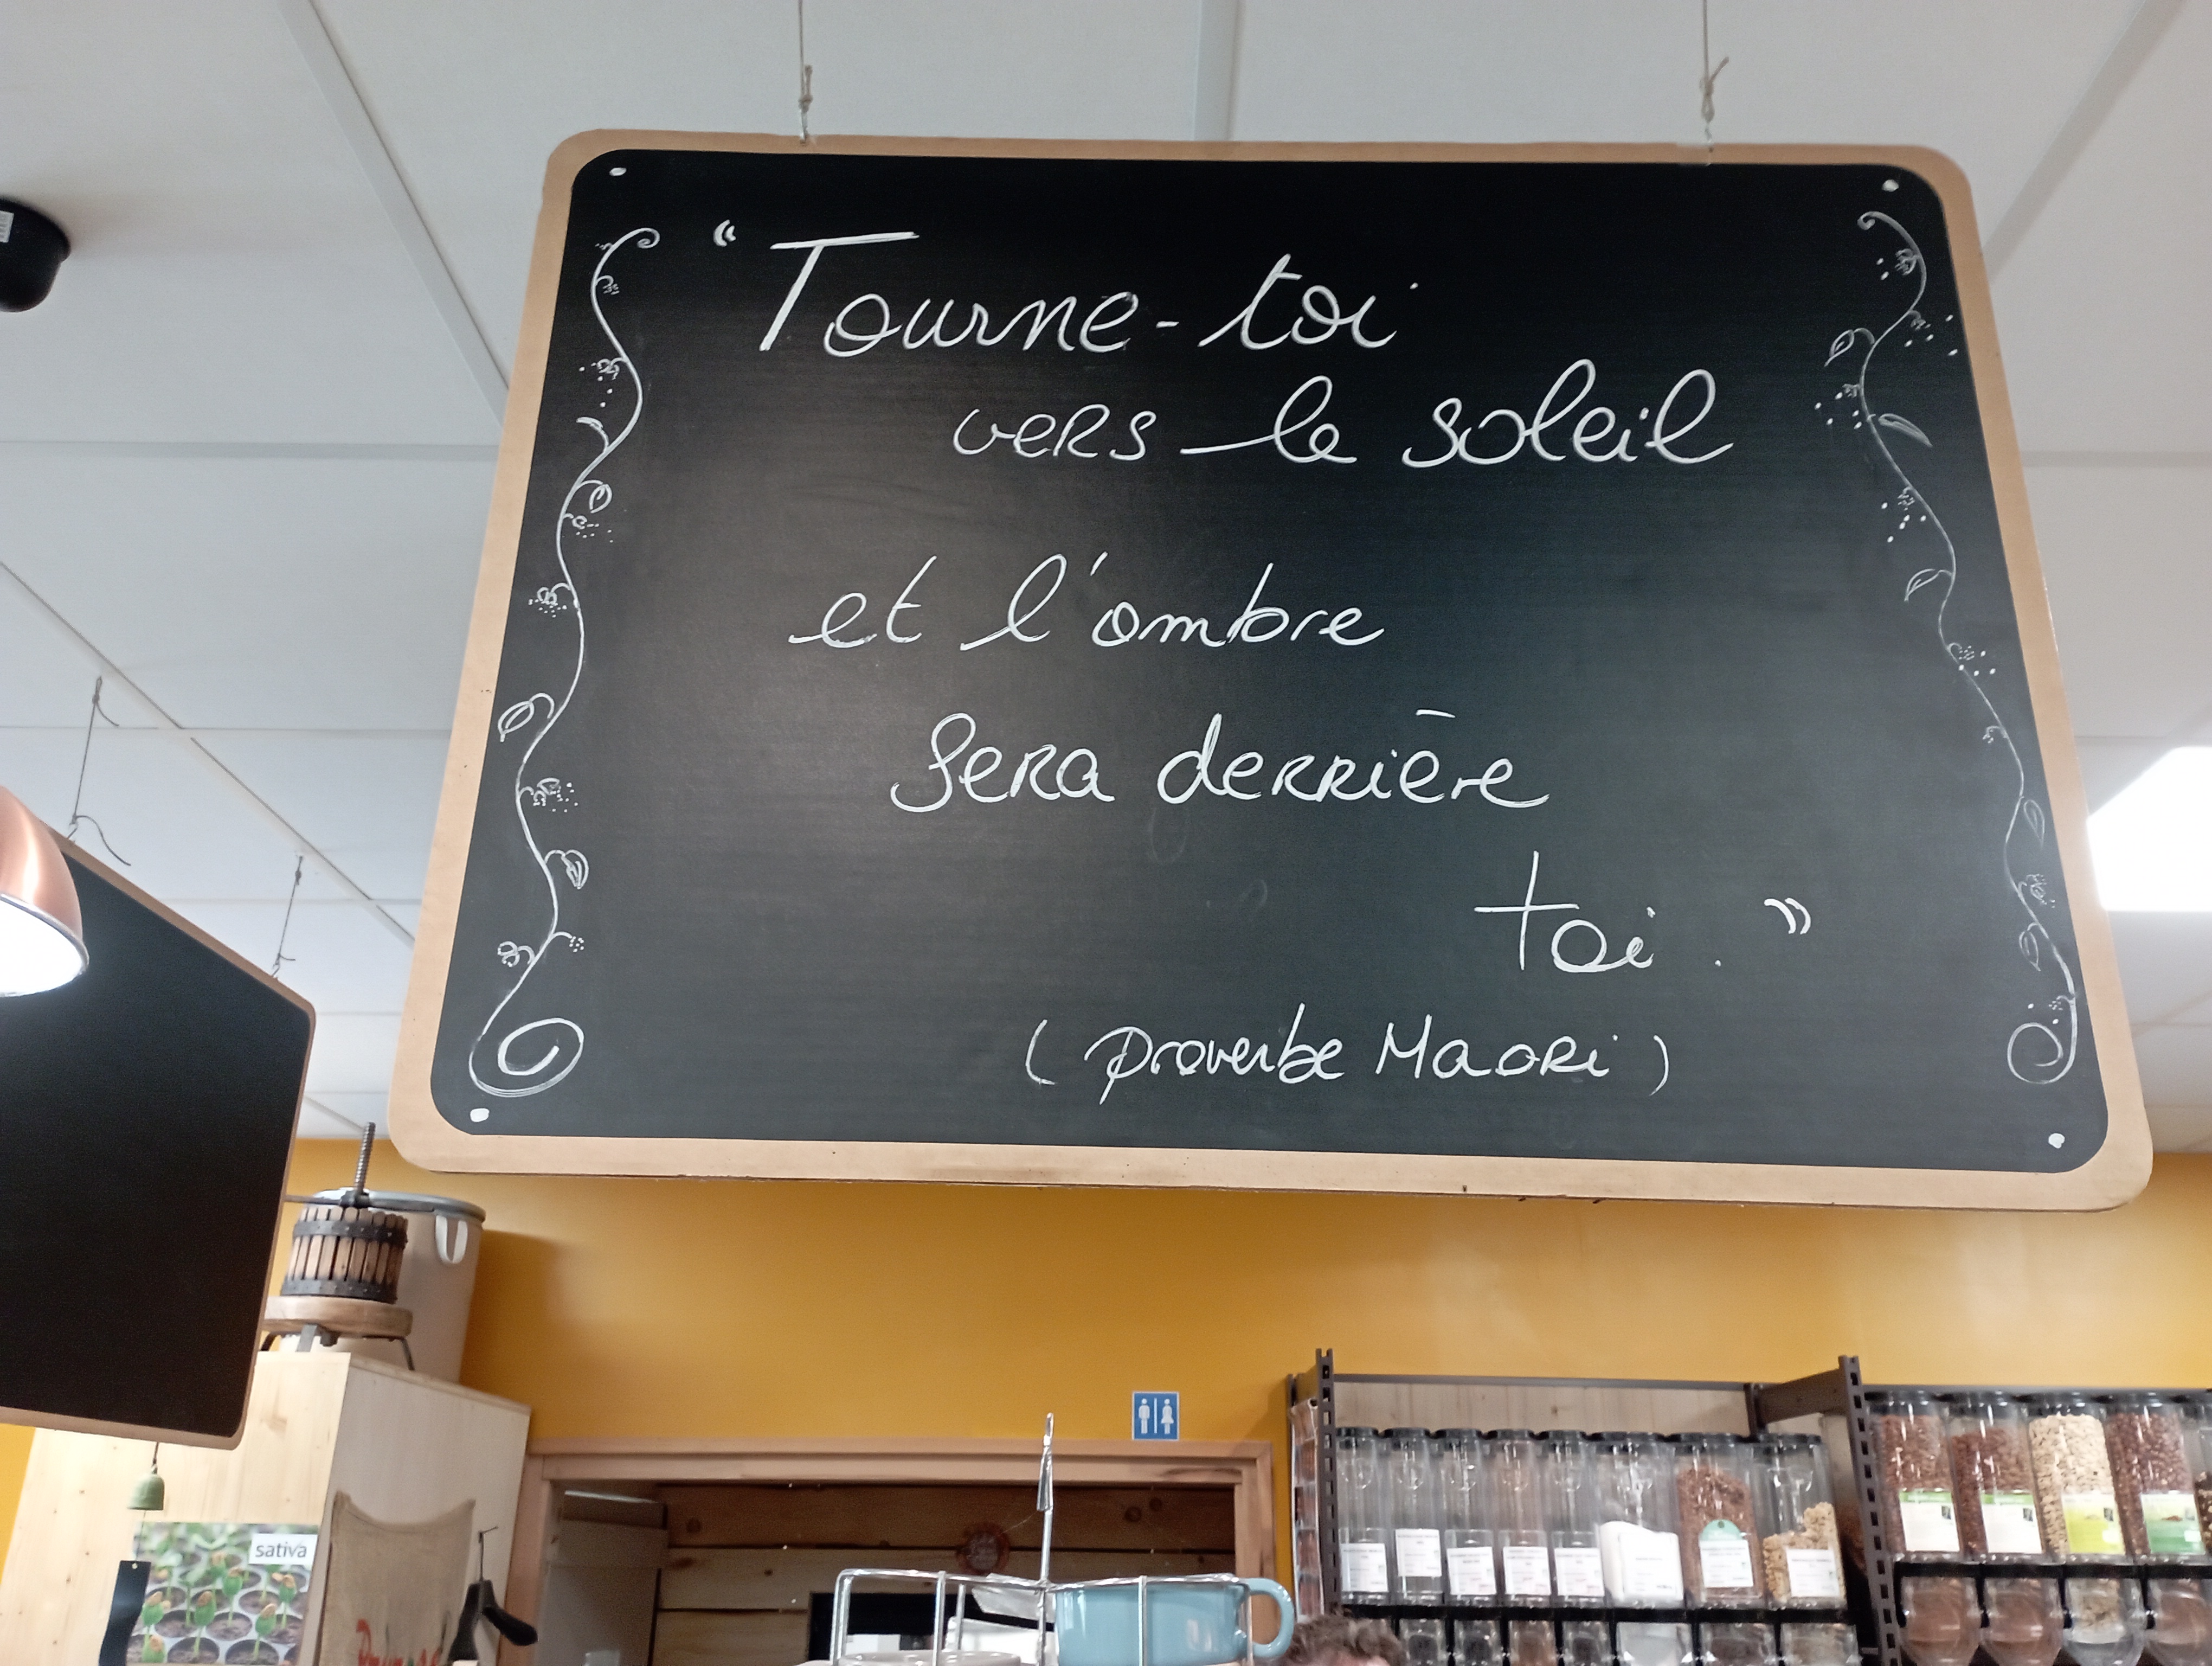 “ Tourne-toi
vers le soleil
et l'ombre
sera derrière
toi. ”
(proverbe Maori)
sativa